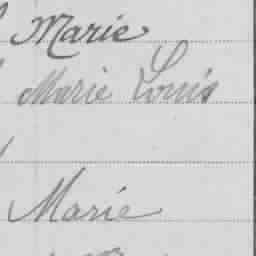 Marie
Marie Louis
Marie